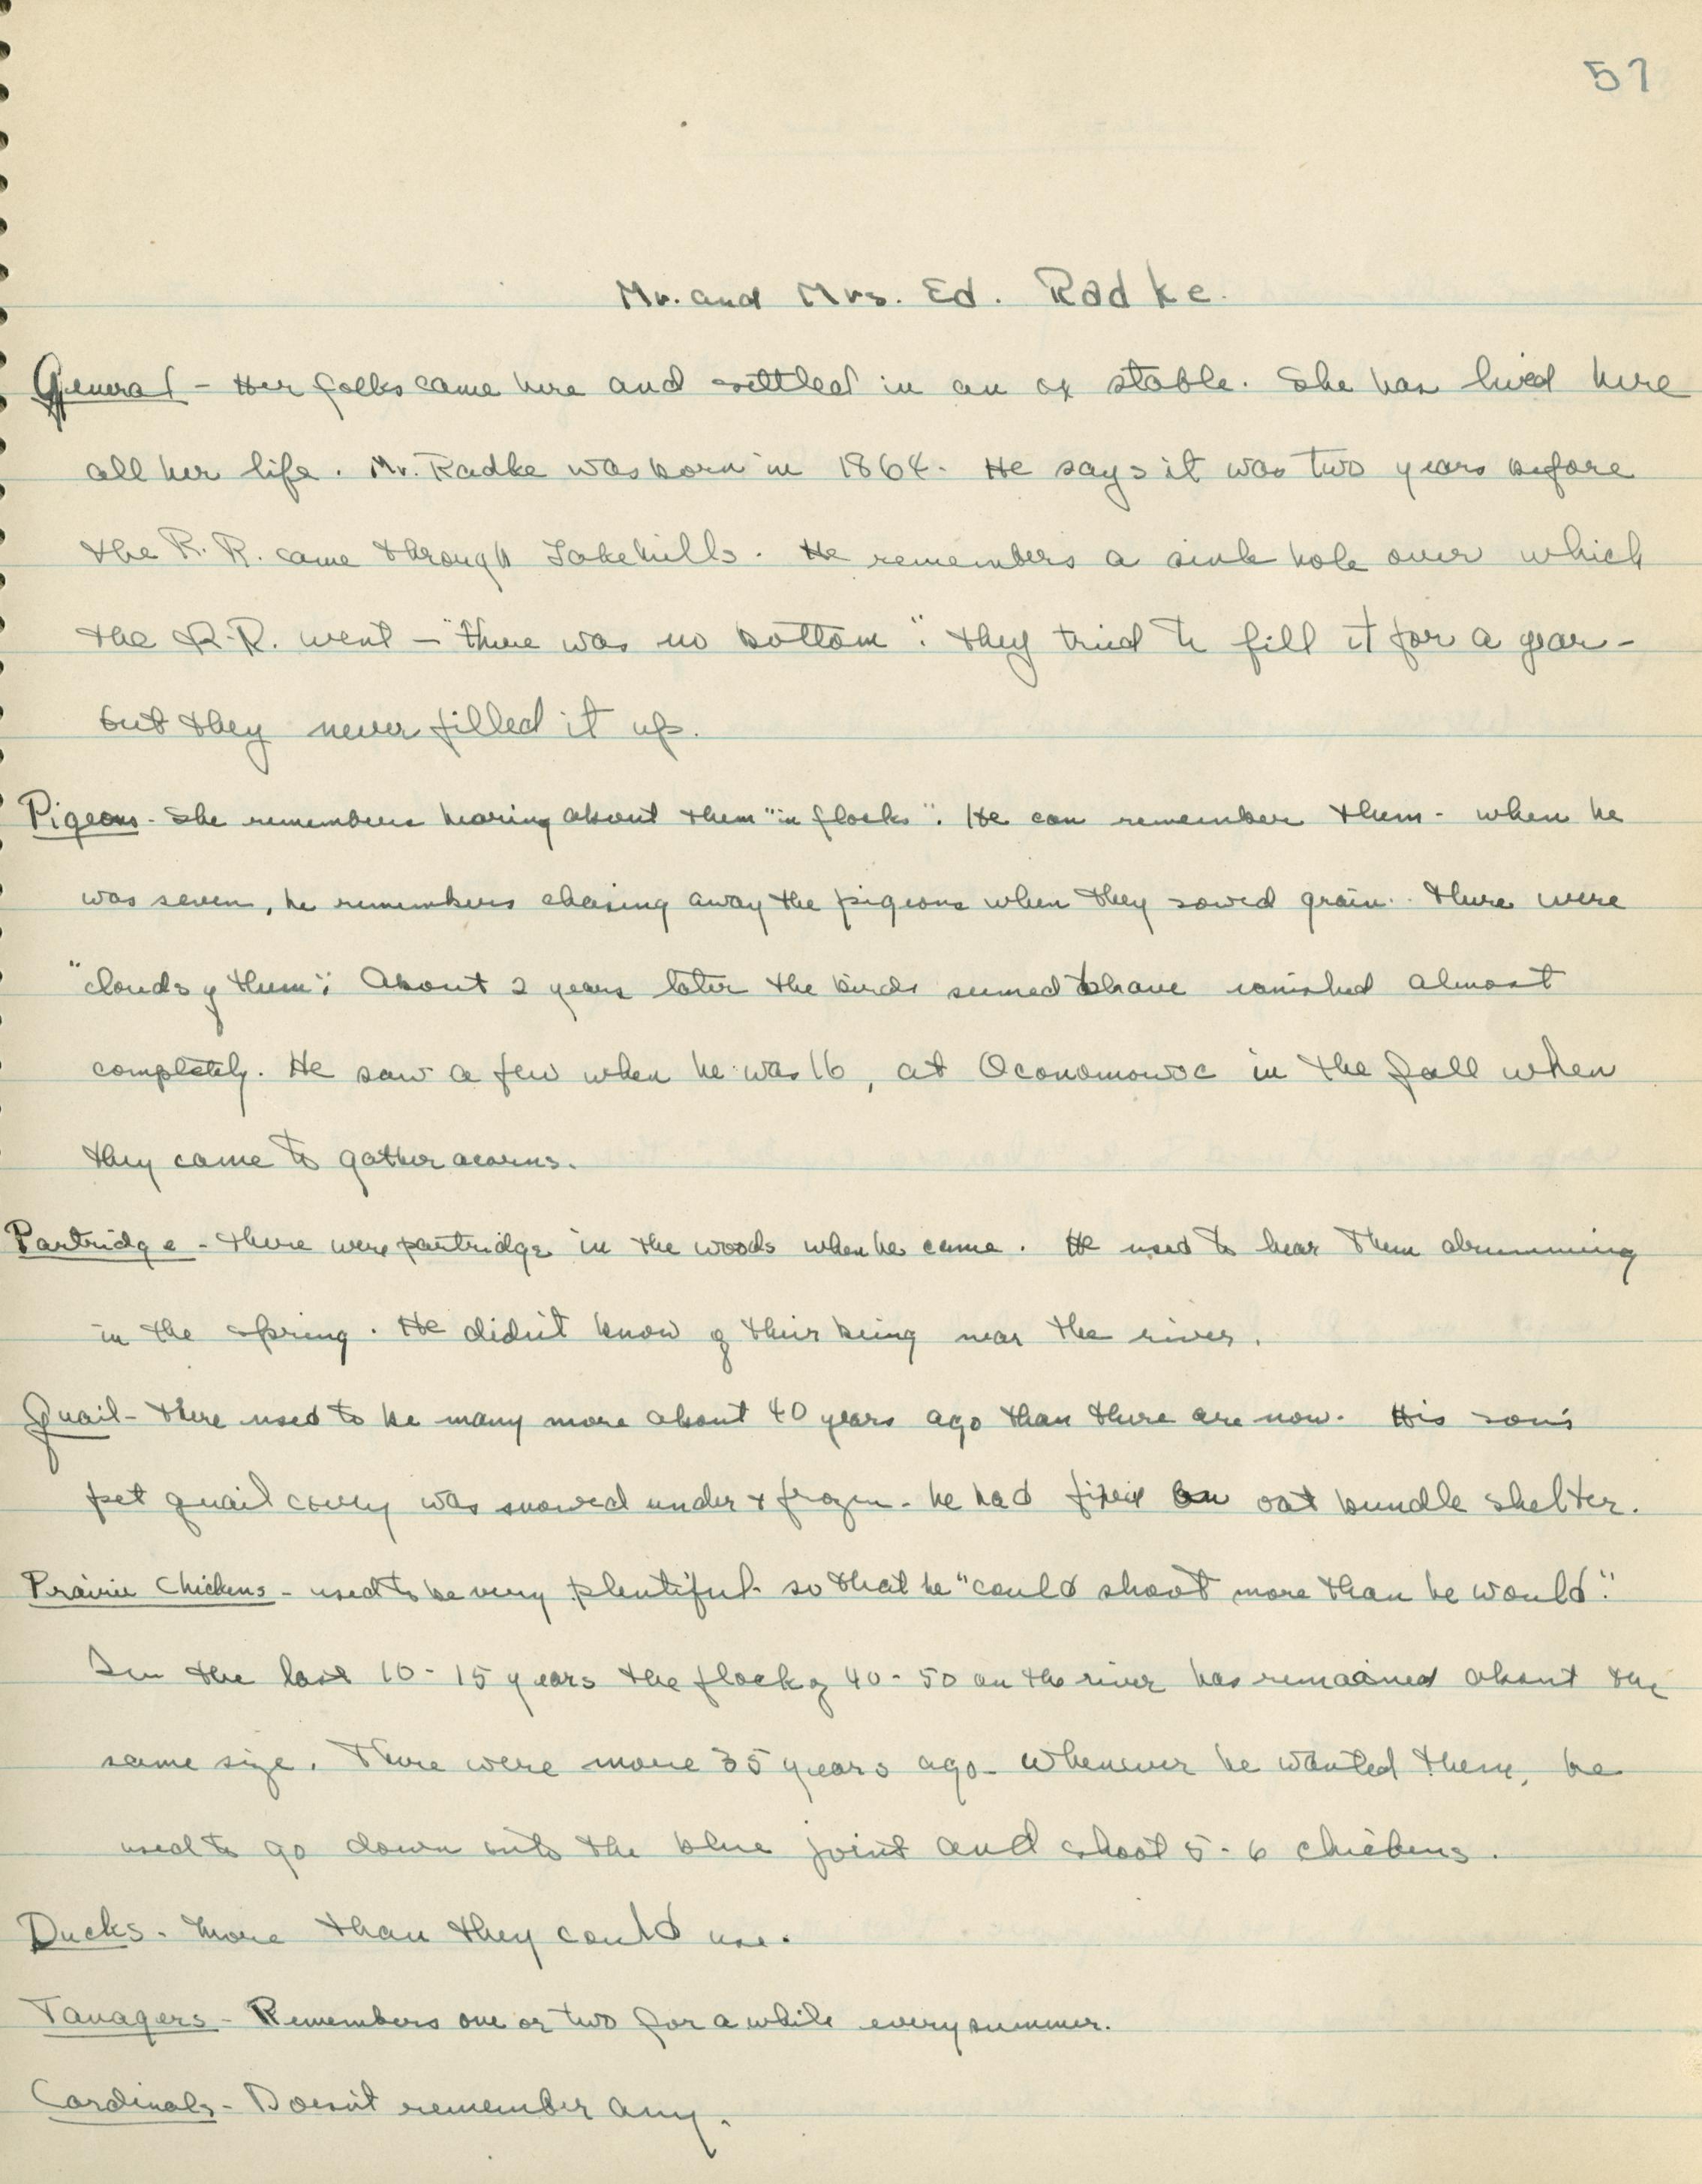 57
Mr. and Mrs. Ed. Radke.
General - Her folks came here and settled in an ox stable. She has lived here
all her life. Mr. Radke was born in 1864. He says it was two years before
the R.R. came through Lakehills. He remembers a sink hole over which
the R.R. went - "there was no bottom". They tried to fill it for a year -
but they never filled it up.
Pigeons - She remembers hearing about them "in flocks". He can remember them - when he
was seven, he remembers chasing away the pigeons when they sowed grain. There were
"clouds of them". About 2 years later the birds seemed to have vanished almost
completely. He saw a few when he was 16, at Oconomowoc in the fall when
they came to gather acorns.
Partridge - There were partridge in the woods when he came. He used to hear them drumming
in the spring. He didn't know of their being near the river.
Quail - There used to be many more about 40 years ago than there are now. His son's
pet quail covey was snowed under & frozen - he had fixed an oat bundle shelter.
Prairie Chickens - used to be very plentiful - so that he "could shoot more than he would".
In the last 10-15 years the flock of 40-50 on the river has remained about the
same size. There were more 35 years ago. Whenever he wanted them, he
used to go down into the blue joint and shoot 5-6 chickens.
Ducks - More than they could use.
Tanagers - Remembers one or two for a while every summer.
Cardinals - Doesn't remember any.